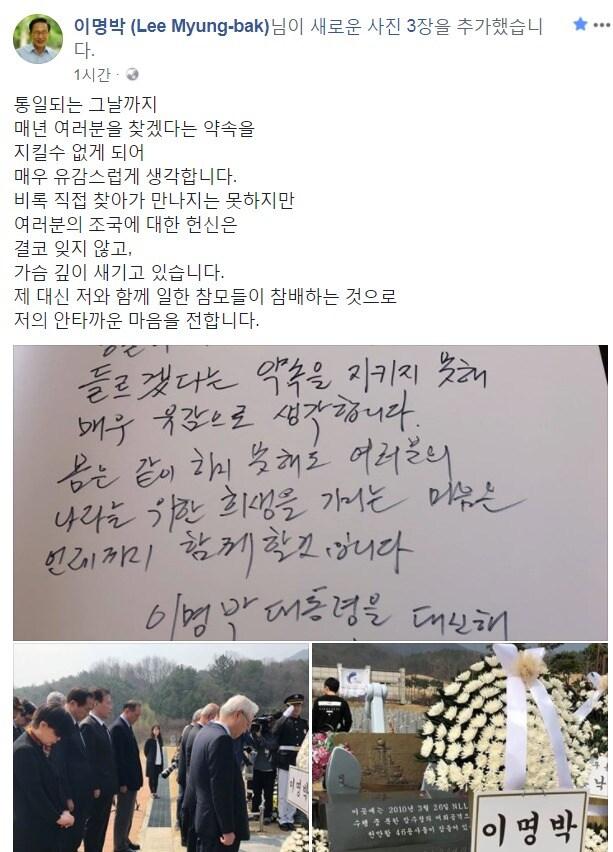 이명박 (Lee Myung-bak)님이 새로운 사진 3장을 추가했습니
다.
1시간 ·
통일되는 그날까지
매년 여러분을 찾겠다는 약속을
지킬수 없게 되어
매우 유감스럽게 생각합니다.
비록 직접 찾아가 만나지는 못하지만
여러분의 조국에 대한 헌신은
결코 잊지 않고,
가슴 깊이 새기고 있습니다.
제 대신 저와 함께 일한 참모들이 참배하는 것으로
저의 안타까운 마음을 전합니다.
들르겠다는 약속을 지키지 못해
매우 유감으로 생각합니다.
몸은 같이 하지 못해도 여러분의
나라를 위한 희생을 기리는 마음은
언제까지 함께 할것입니다
이명박 대통령을 대신해
이명박
이곳에는 2010년 3월 26일 NLL
수행 중 북한 잠수정의 어뢰공격으
천안함 46용사들이 잠들어 있
이명박